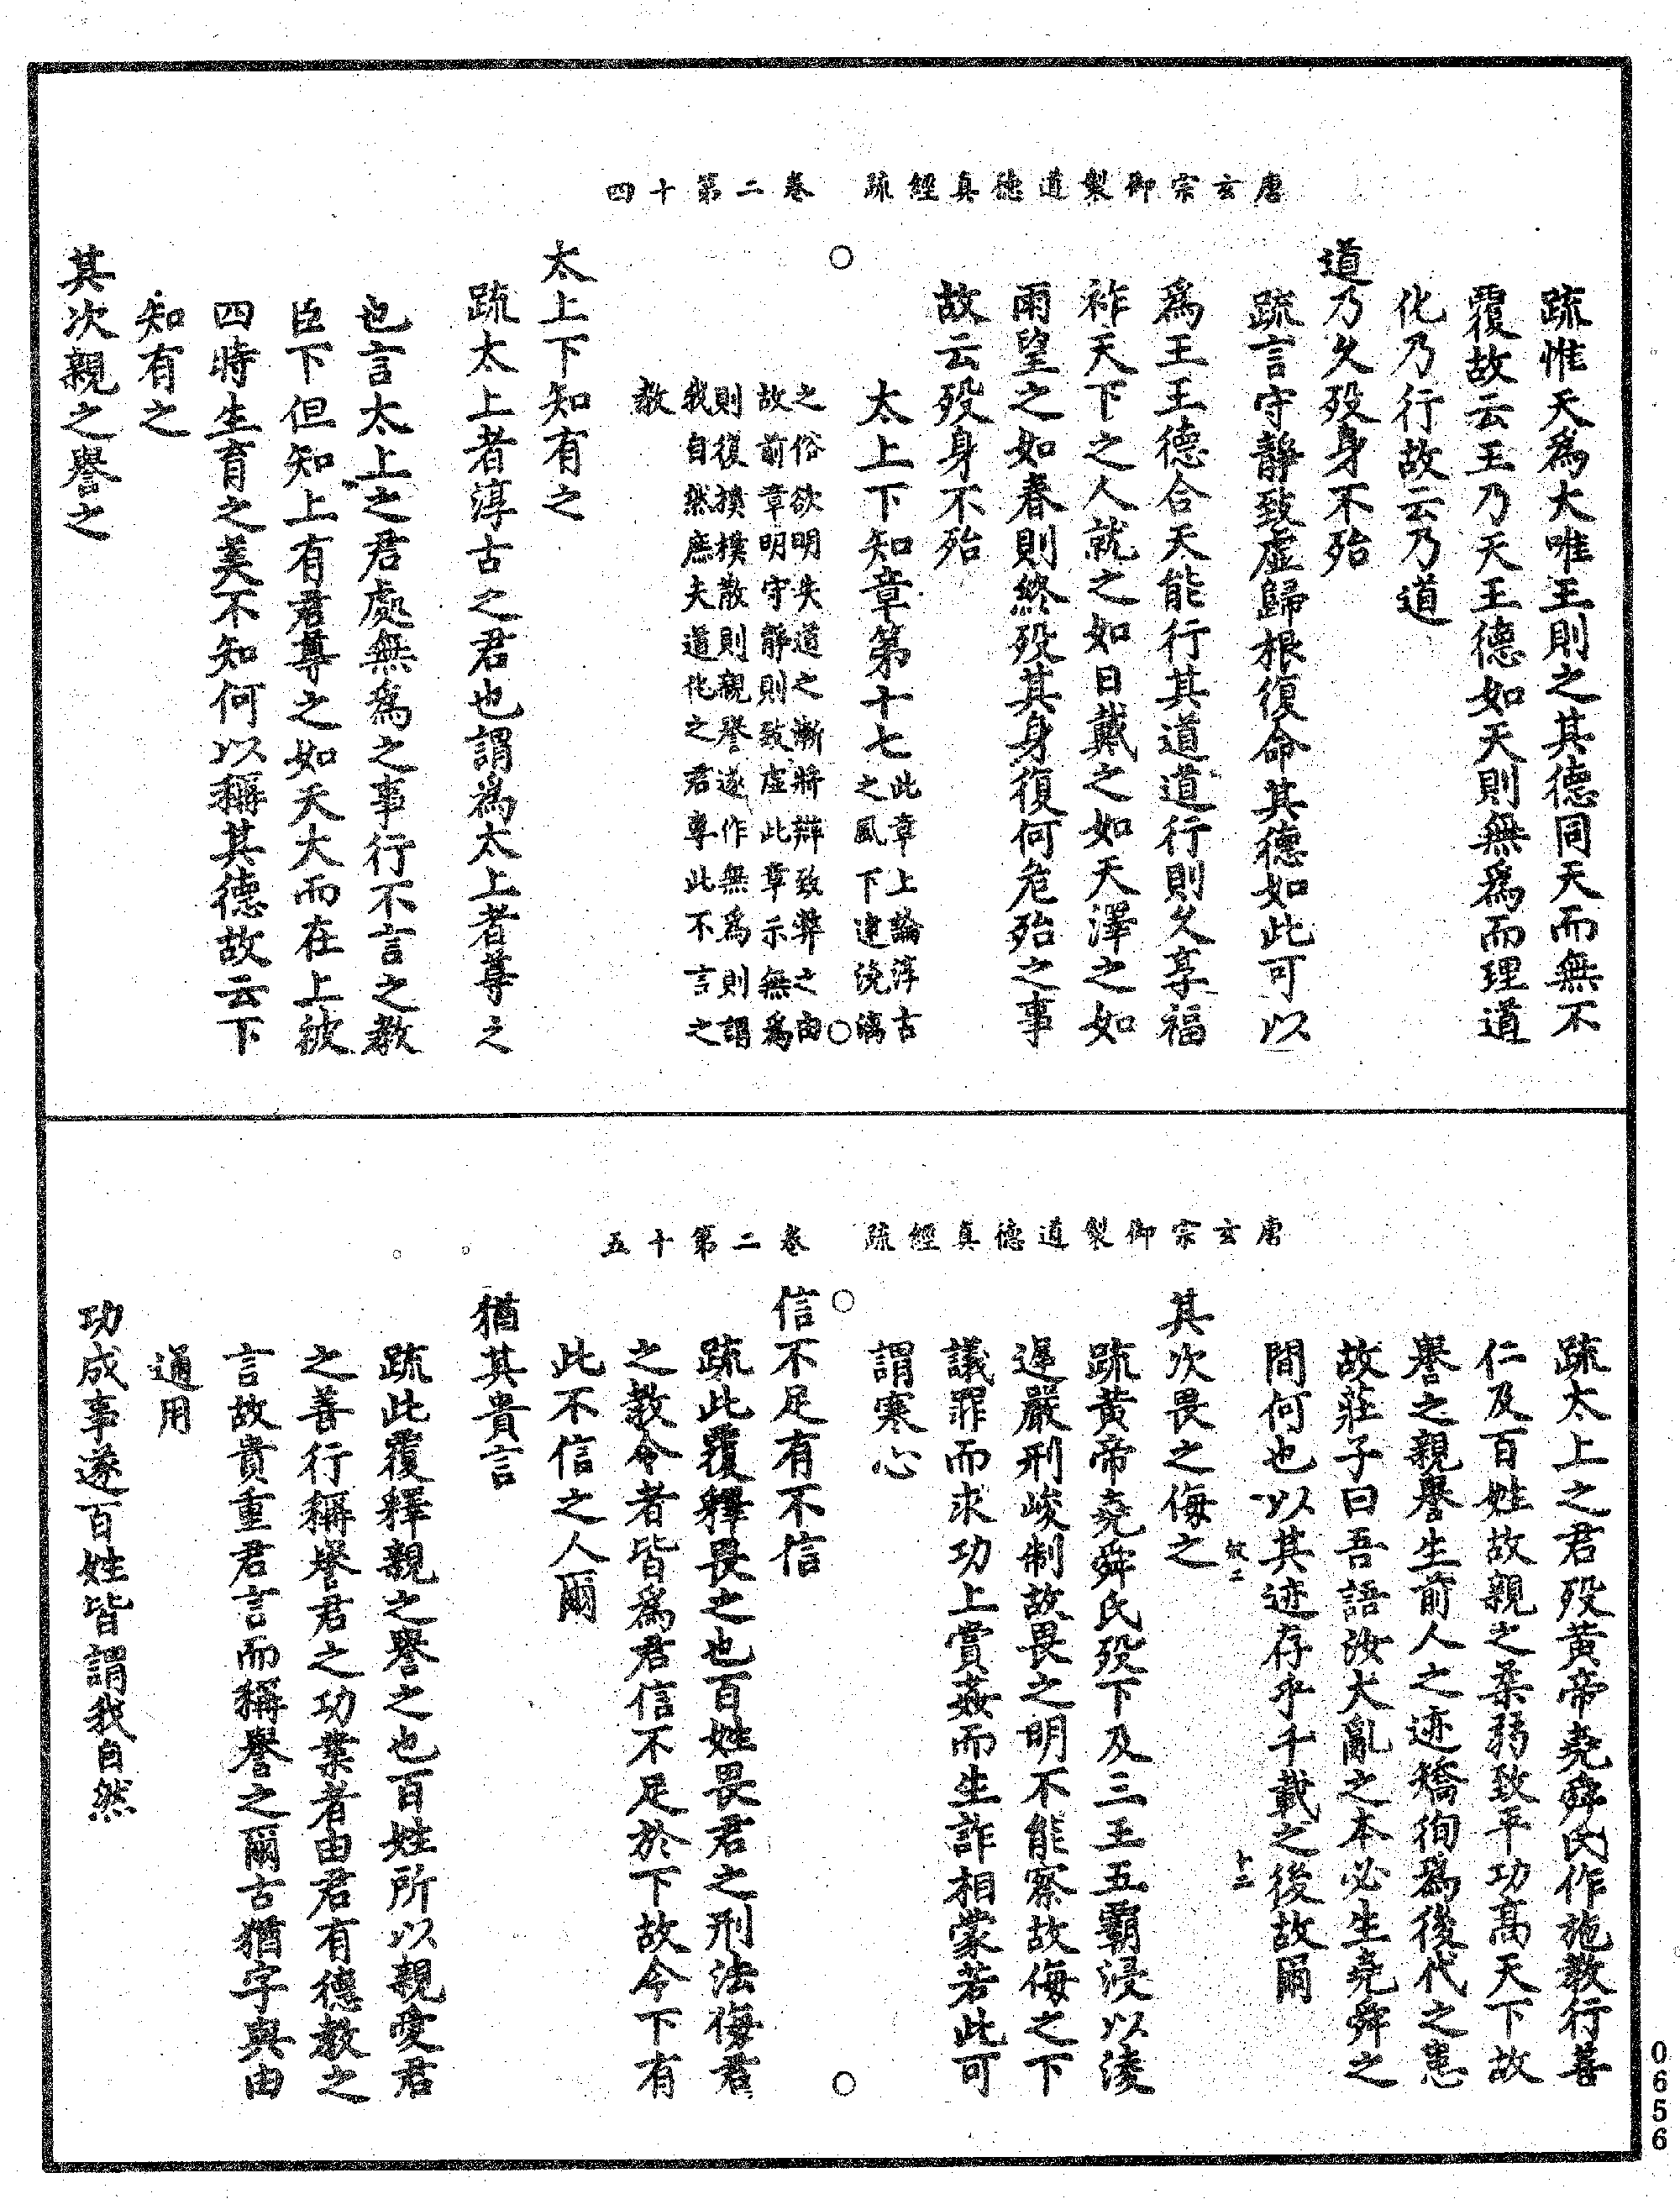 唐玄宗御製道德真經疏　卷二第十四
疏惟天為大唯王則之其德同天而無不
覆故云王乃天王德如天則無為而理道
化乃行故云乃道
道乃久歿身不殆
疏言守靜致虛歸根復命其德如此可以
為王王德合天能行其道道行則久享福
祚天下之人就之如日戴之如天澤之如
雨望之如春則終歿其身復何危殆之事
故云歿身不殆
太上下知章第十七此章上論淳古
之風下逮澆漓
之俗欲明失道之漸將辯致弊之由
故前章明守靜則致虛此章示無為
則復樸樸散則親譽遂作無為則謂
我自然庶夫道化之君專此不言之
教
太上下知有之
疏太上者淳古之君也謂為太上者尊之
也言太上之君處無為之事行不言之教
臣下但知上有君尊之如天大而在上被
四時生育之美不知何以稱其德故云下
知有之
其次親之譽之
唐玄宗御製道德真經疏　卷二第十五
疏太上之君歿黃帝堯舜氏作施教行善
仁及百姓故親之柔弱致平功高天下故
譽之親譽生前人之迹矯徇為後代之患
故莊子曰吾語汝大亂之本必生堯舜之
間何也以其迹存乎千載之後故爾
其次畏之侮之
疏黃帝堯舜氏歿下及三王五霸浸以淩
遲嚴刑峻制故畏之明不能察故侮之下
議罪而求功上賞姦而生詐相蒙若此可
謂寒心
信不足有不信
疏此覆釋畏之也百姓畏君之刑法侮君
之教令者皆為君信不足於下故令下有
此不信之人爾
猶其貴言
疏此覆釋親之譽之也百姓所以親愛君
之善行稱譽君之功業者由君有德教之
言故貴重君言而稱譽之爾古猶字與由
通用
功成事遂百姓皆謂我自然
0656